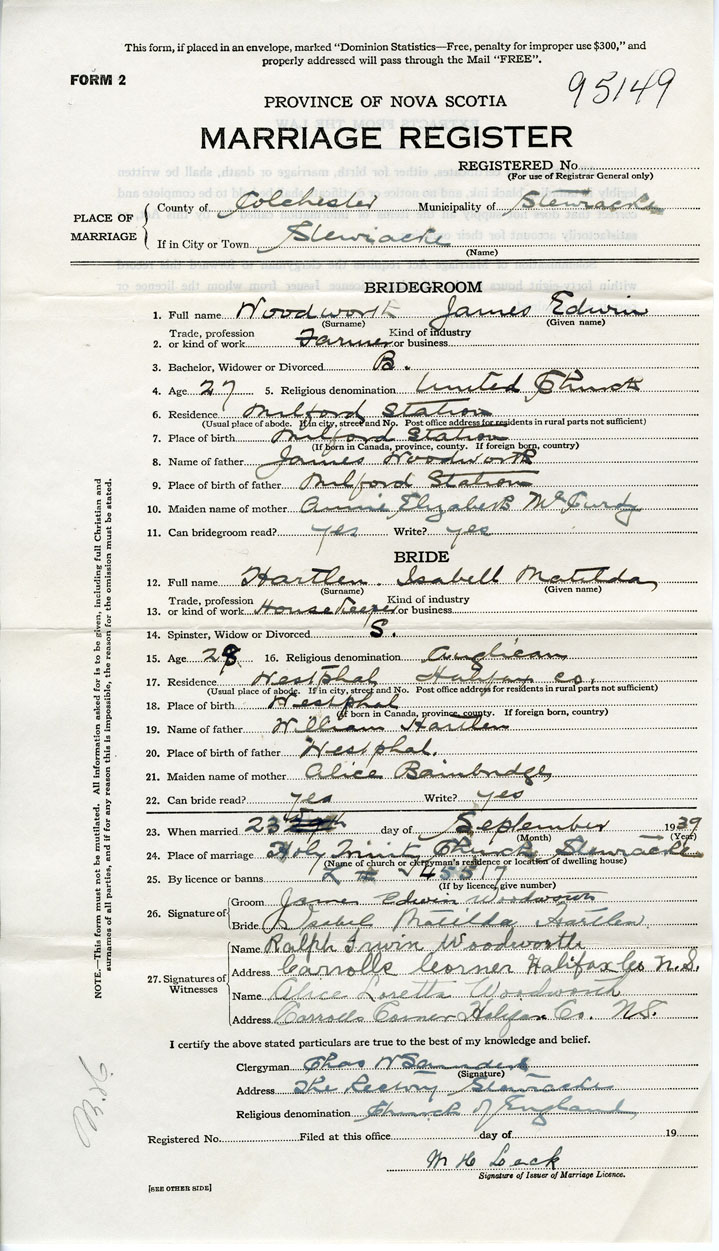 This form, if placed in an envelope, marked "Dominion Statistics—Free, penalty for improper use $300," and
properly addressed will pass through the Mail "FREE".
FORM 2
95149
PROVINCE OF NOVA SCOTIA
MARRIAGE REGISTER
REGISTERED No.
(For use of Registrar General only)
PLACE OF MARRIAGE
County of Colchester Municipality of Stewiacke
If in City or Town Stewiacke
(Name)
BRIDEGROOM
1. Full name Woodworth James Edwin
(Surname) (Given name)
2. Trade, profession or kind of work Farmer Kind of industry or business
3. Bachelor, Widower or Divorced B.
4. Age 27 5. Religious denomination United Church
6. Residence Milford Station
(Usual place of abode. If in city, street and No. Post office address for residents in rural parts not sufficient)
7. Place of birth Milford Station
(If born in Canada, province, county. If foreign born, country)
8. Name of father James Woodworth
9. Place of birth of father Milford Station
10. Maiden name of mother Annie Elizabeth McCurdy
11. Can bridegroom read? yes Write? yes
BRIDE
12. Full name Hartlen. Isabell Matilda
(Surname) (Given name)
13. Trade, profession or kind of work House Keeper Kind of industry or business
14. Spinster, Widow or Divorced S.
15. Age 28 16. Religious denomination Anglican
17. Residence Westphal Halifax Co.
(Usual place of abode. If in city, street and No. Post office address for residents in rural parts not sufficient)
18. Place of birth Westphal
(If born in Canada, province, county. If foreign born, country)
19. Name of father William Hartlen
20. Place of birth of father Westphal.
21. Maiden name of mother Alice Bambridge
22. Can bride read? yes Write? yes
23. When married 23 day of September 1939
(Month) (Year)
24. Place of marriage Holy Trinity Church Stewiacke
(Name of church or clergyman's residence or location of dwelling house)
25. By licence or banns L # 45517
(If by licence, give number)
26. Signature of
Groom James Edwin Woodworth
Bride Isabel Matilda Hartlen
27. Signatures of Witnesses
Name Ralph Irwin Woodworth
Address Carrolls Corner Halifax Co N.S.
Name Alice Loretta Woodworth
Address Carrolls Corner Halifax Co. N.S.
I certify the above stated particulars are true to the best of my knowledge and belief.
Clergyman Chas W Saunders
(Signature)
Address The Rectory Stewiacke
Religious denomination Church of England
Registered No. Filed at this office day of 19
M H Lock
Signature of Issuer of Marriage Licence.
[SEE OTHER SIDE]
NOTE.—This form must not be mutilated. All information asked for is to be given, including full Christian and
surnames of all parties, and if for any reason this is impossible, the reason for the omission must be stated.